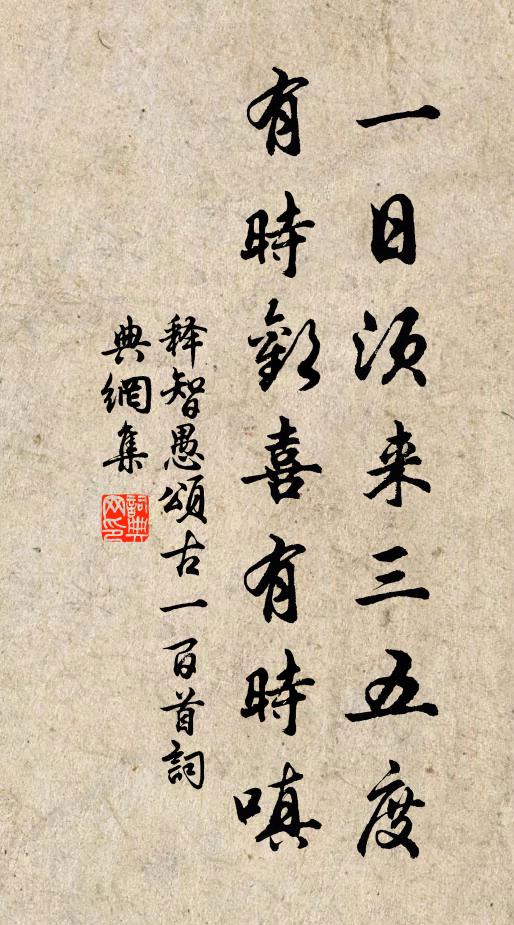 一日須来三五度
有時歡喜有時嗔
释智愚頌古一百首詞
典網集
詞典网印